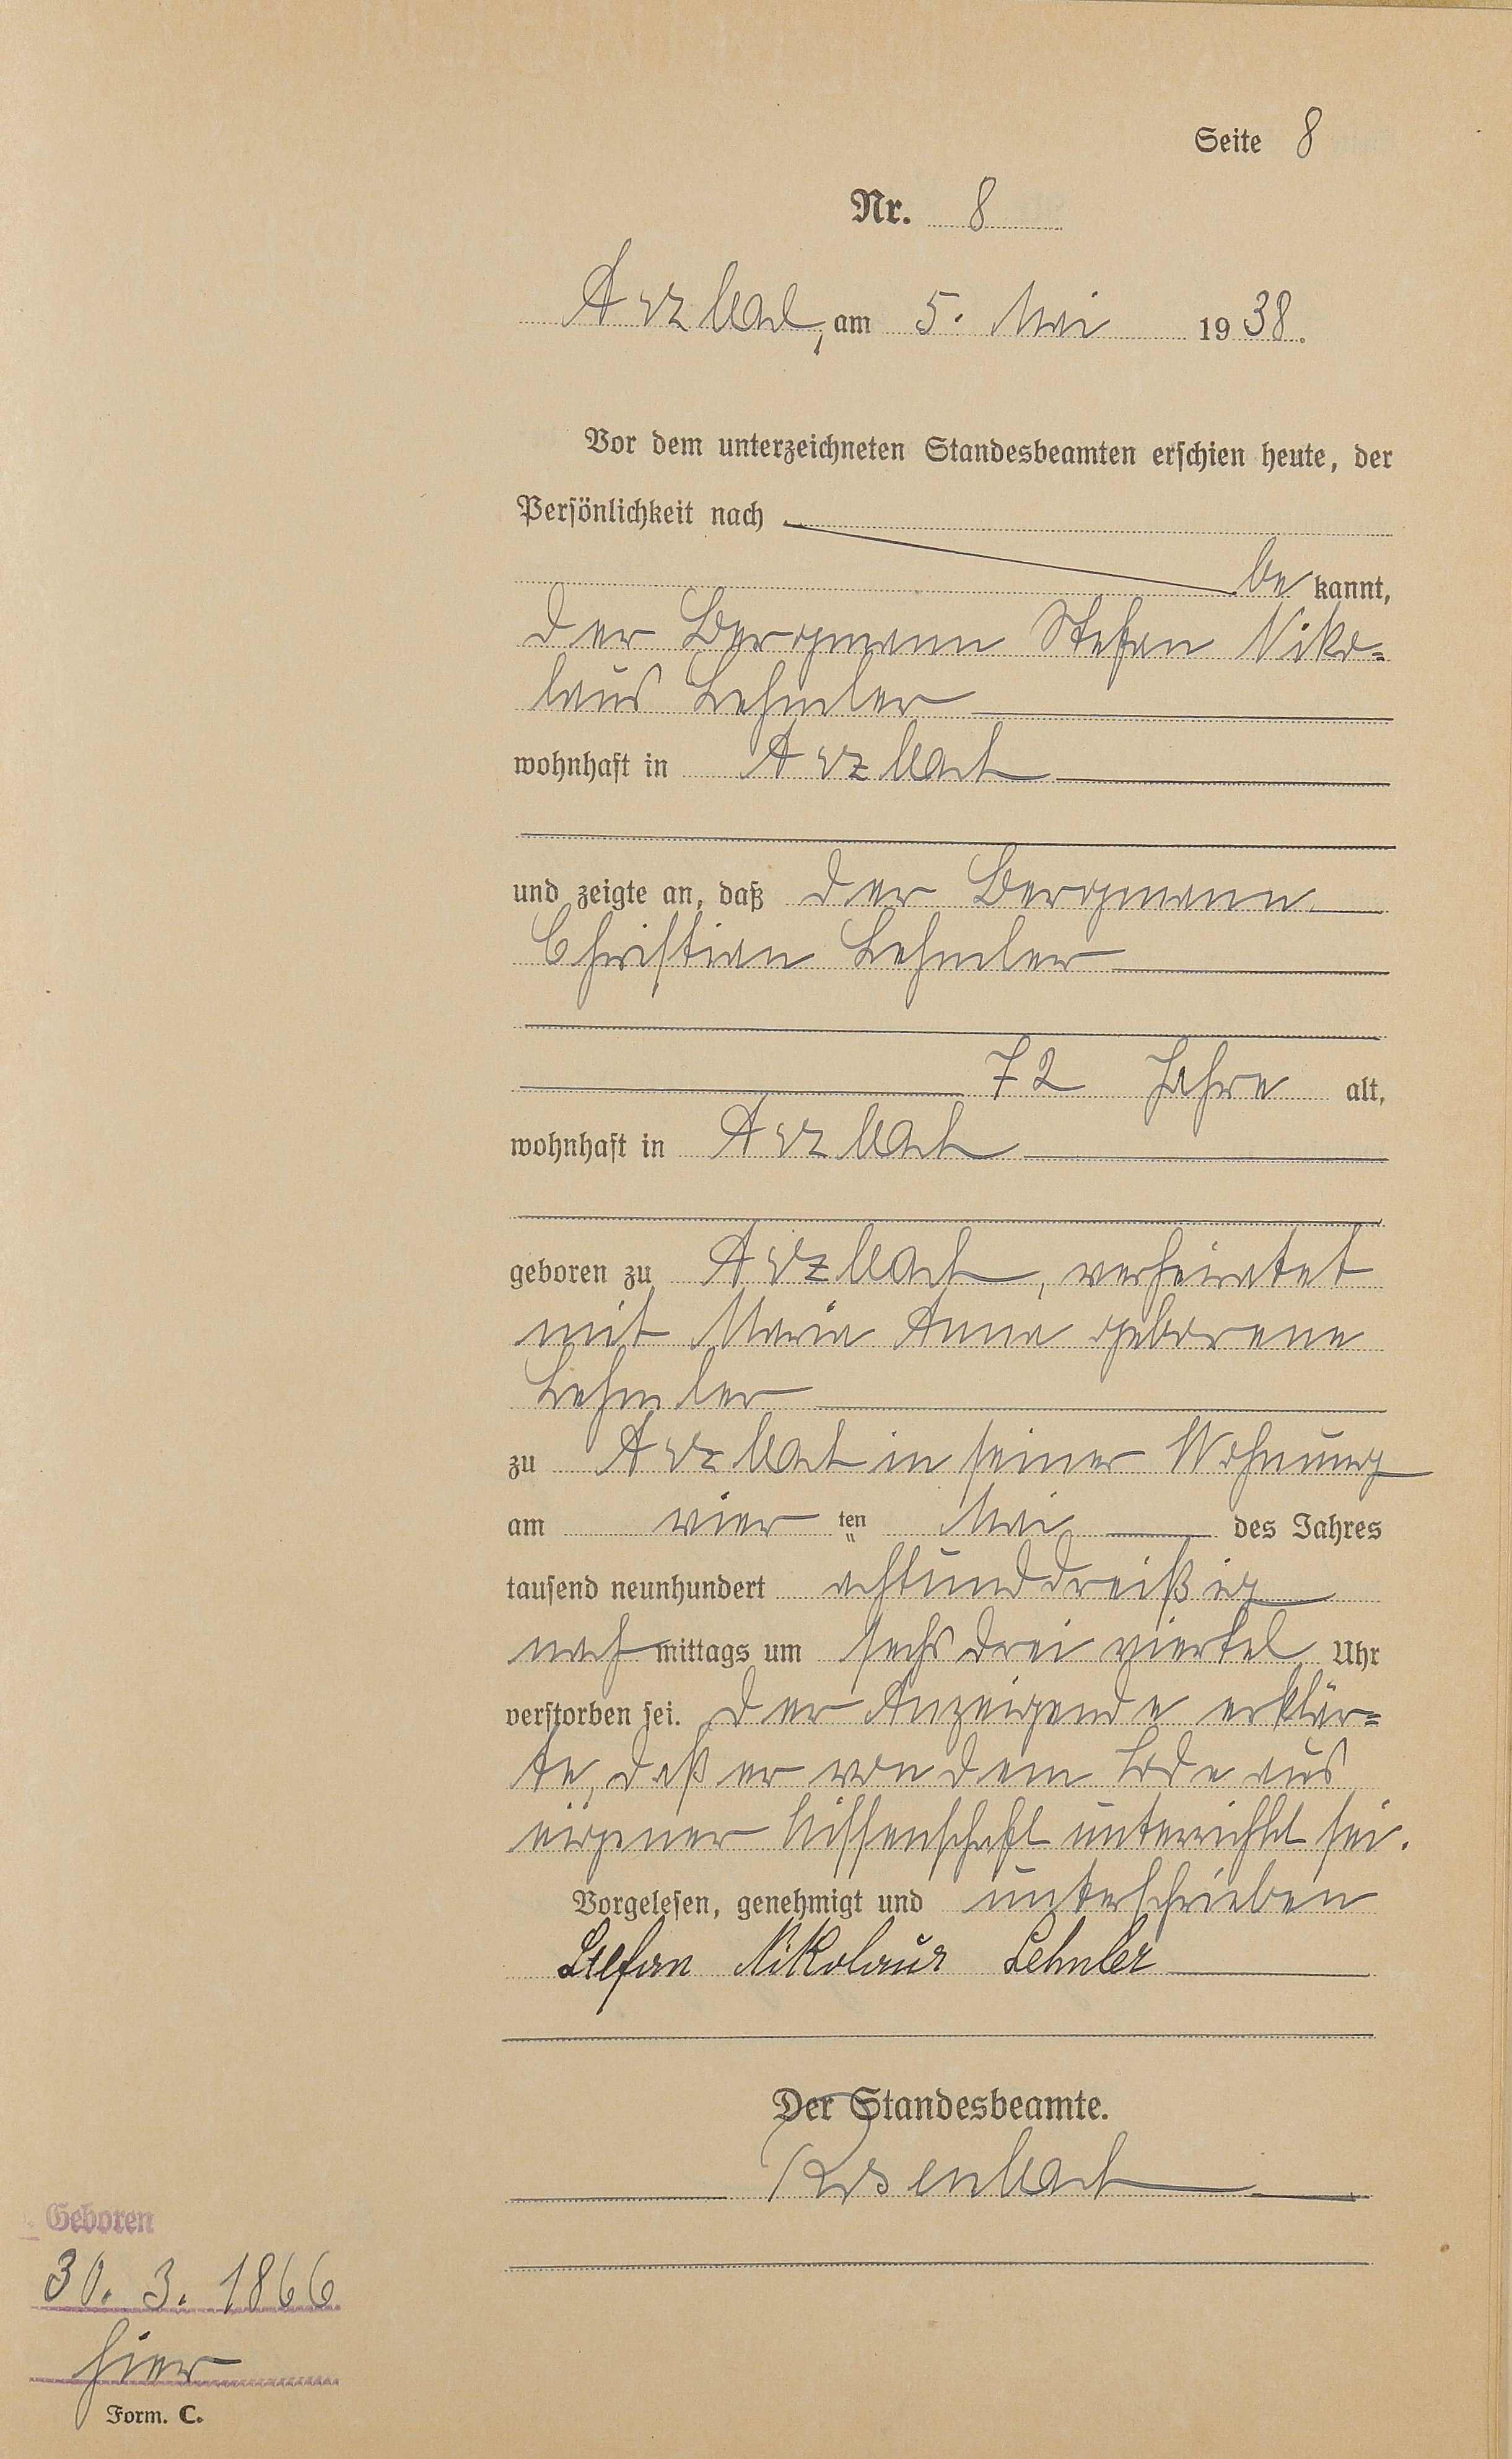 Seite 8
Nr. 8
Arzbach, am 5. Mai 1938.
Vor dem unterzeichneten Standesbeamten erschien heute, der
Persönlichkeit nach
be kannt,
der Bergmann Stefan Niko-
laus Lehmler
wohnhaft in Arzbach
und zeigte an, daß der Bergmann
Christian Lehmler
72 Jahre alt,
wohnhaft in Arzbach
geboren zu Arzbach, verheiratet
mit Maria Anna geborene
Lehmler
zu Arzbach in seiner Wohnung
am vier ten Mai des Jahres
tausend neunhundert achtunddreißig
nach mittags um sechs drei viertel Uhr
verstorben sei. Der Anzeigende erklär-
te, daß er von dem Tode aus
eigener Wissenschaft unterrichtet sei.
Vorgelesen, genehmigt und unterschrieben
Stefan Nikolaus Lehmler
Der Standesbeamte.
Rosenbach
Geboren
30. 3. 1866
hier
Form. C.